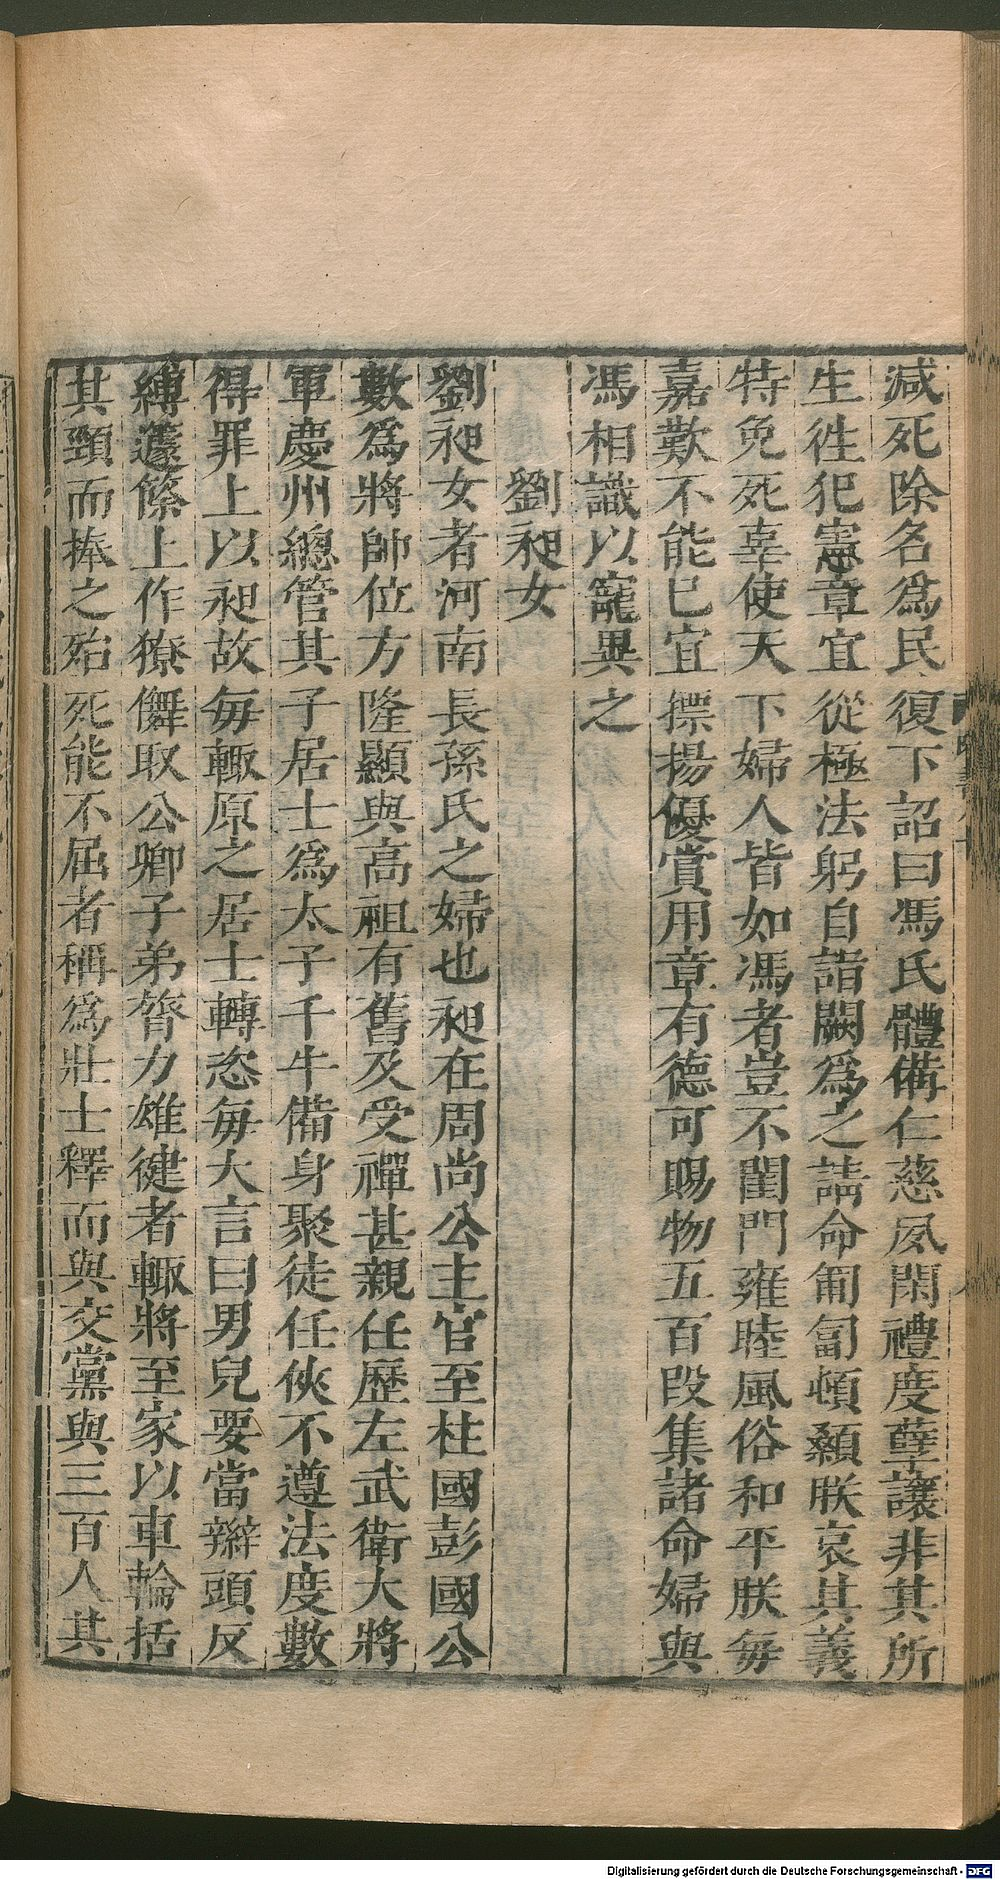 減死除名爲民復下詔曰馮氏體備仁慈夙閑禮度孽讓非其所
生徃犯憲章宜從極法躬自詣闕爲之請命匍匐頓顙朕哀其義
特免死辜使天下婦人皆如馮者豈不閨門雍睦風俗和平朕每
嘉歎不能已宜摽揚優賞用章有德可賜物五百段集諸命婦與
馮相識以寵異之
劉昶女
劉昶女者河南長孫氏之婦也昶在周尚公主官至柱國彭國公
數爲將帥位方隆顯與高祖有舊及受禪甚親任歷左武衛大將
軍慶州總管其子居士爲太子千牛備身聚徒任俠不遵法度數
得罪上以昶故每輒原之居士轉恣每大言曰男兒要當辮頭反
縛籧篨上作獠儛取公卿子弟膂力雄健者輒將至家以車輪括
其頸而捧之殆死能不屈者稱爲壯士釋而與交黨與三百人其
Digitalisierung gefördert durch die Deutsche Forschungsgemeinschaft - DFG